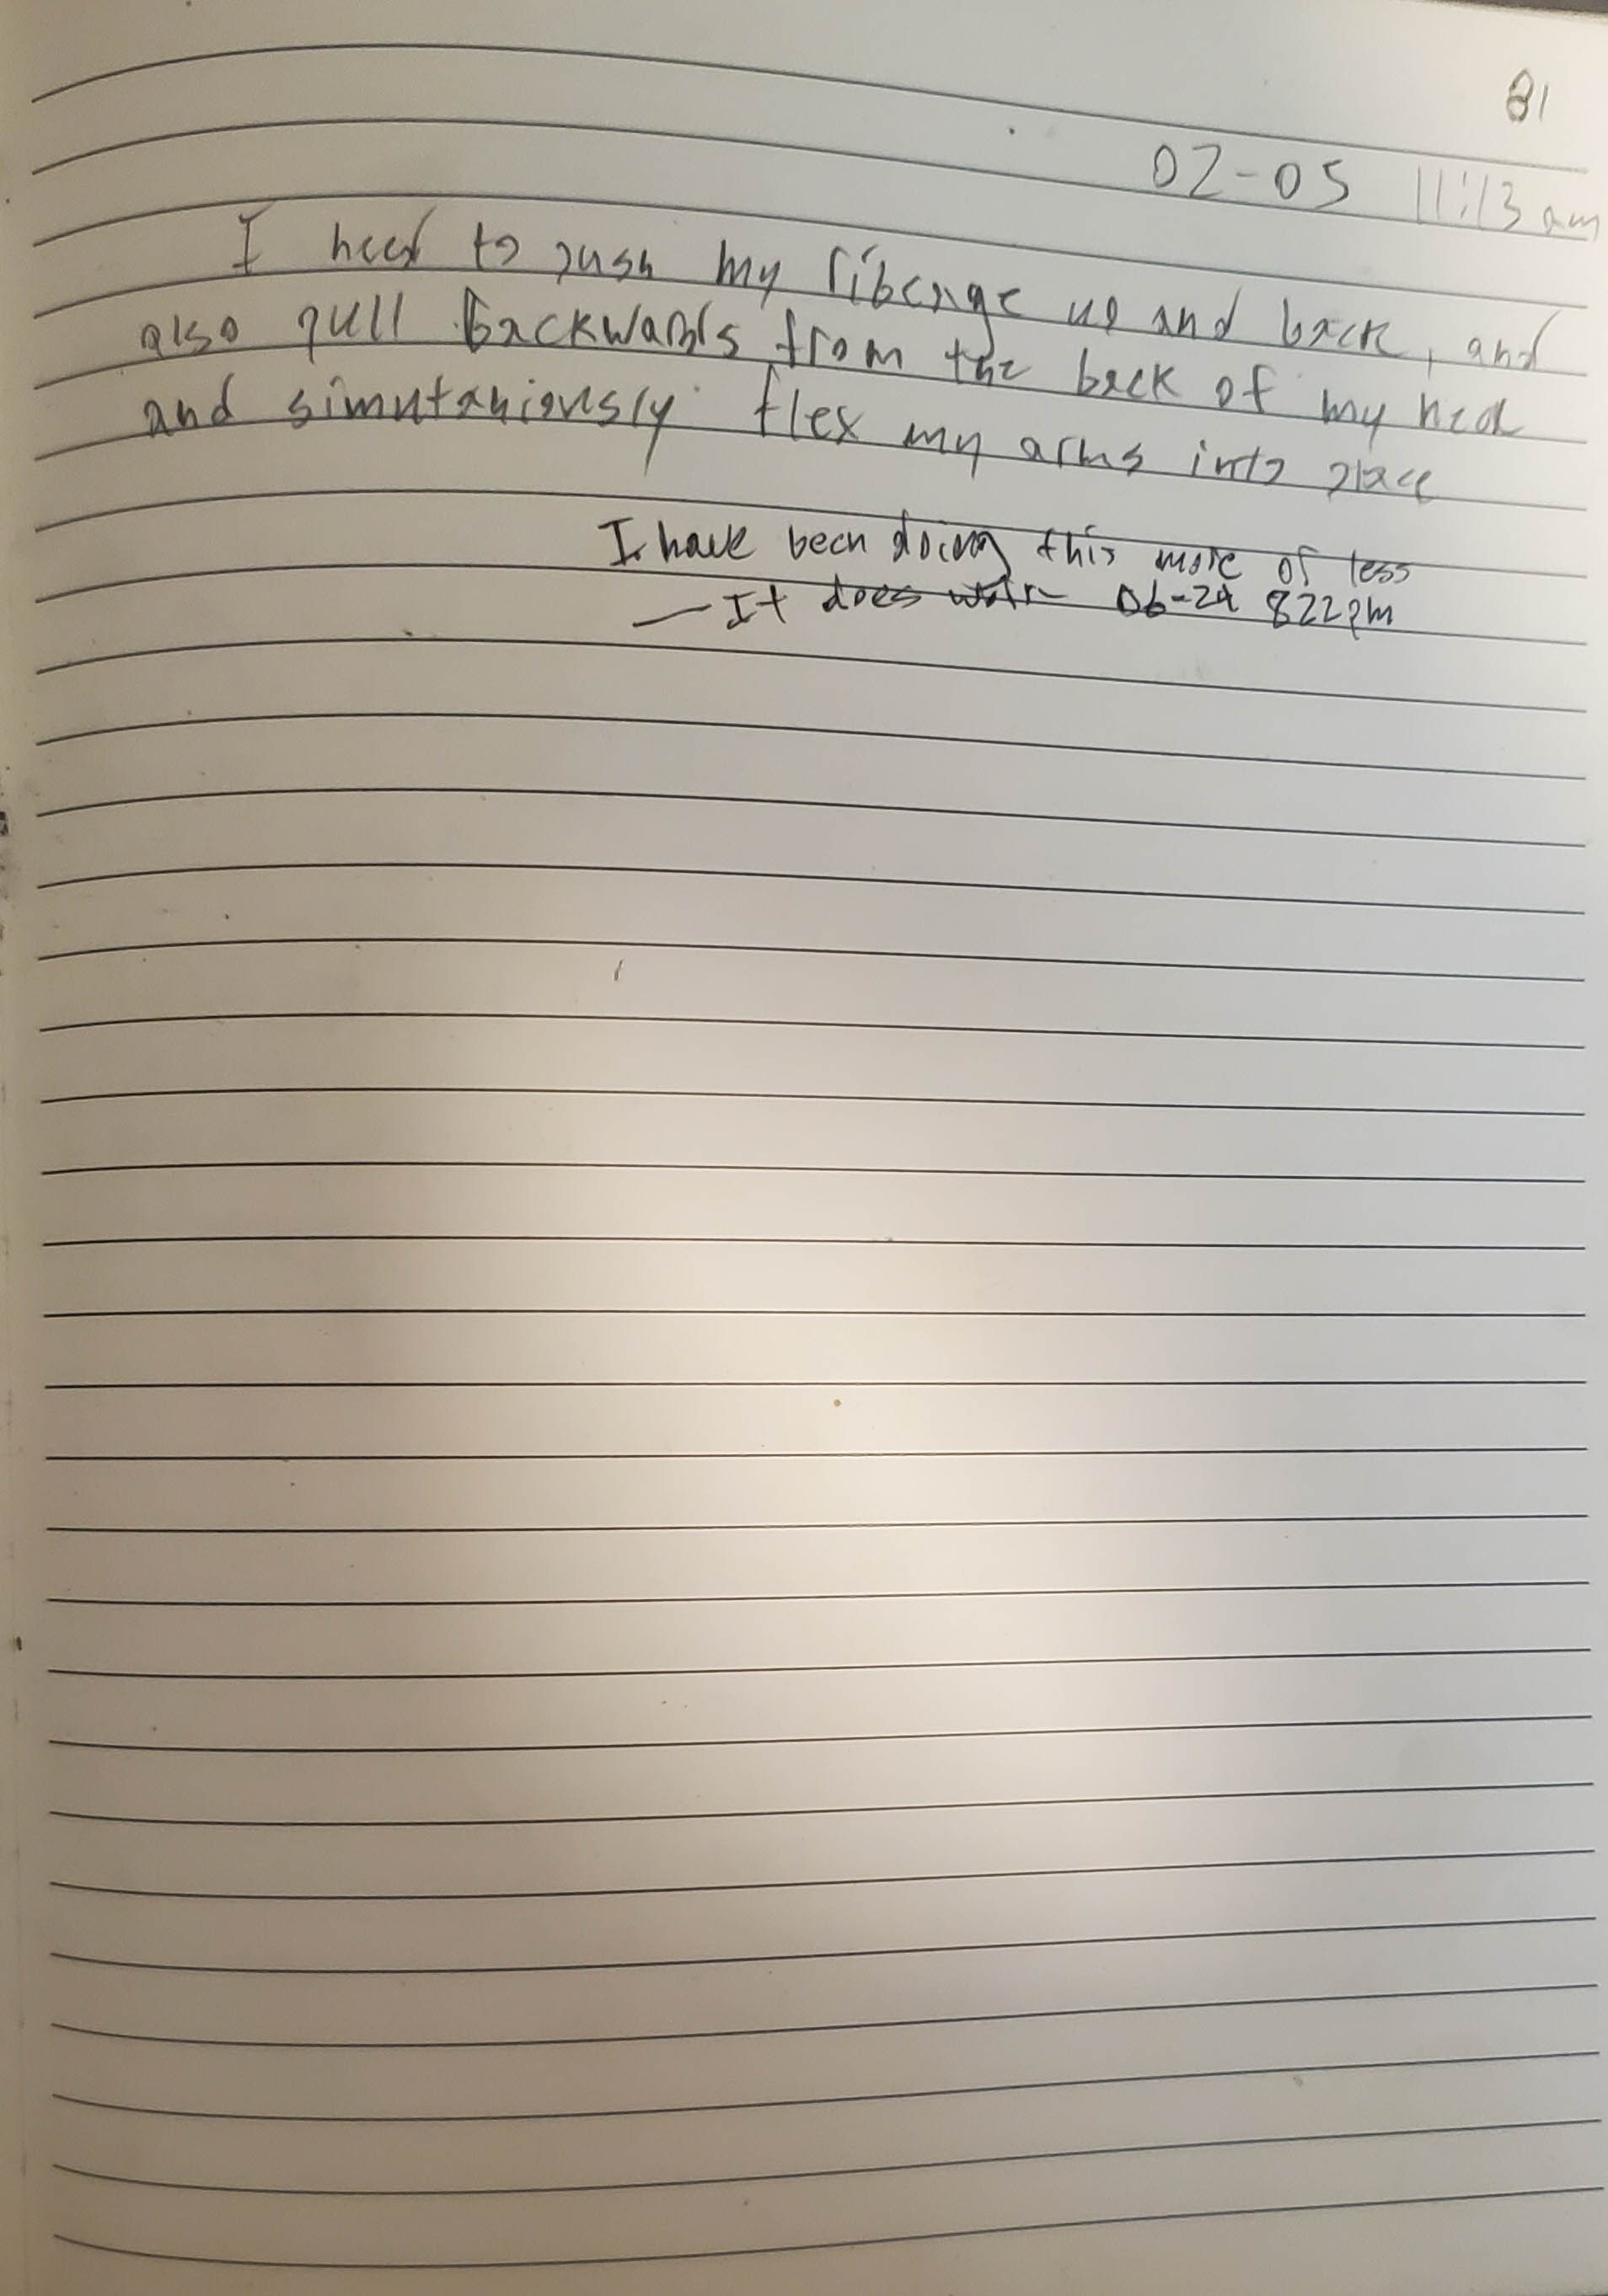 81
02-05 11:13 am
I need to push my ribcage up and back, and
also pull backwards from the back of my head
and simutaniously flex my arms into place
I have been doing this more or less
— It does work 06-24 822pm